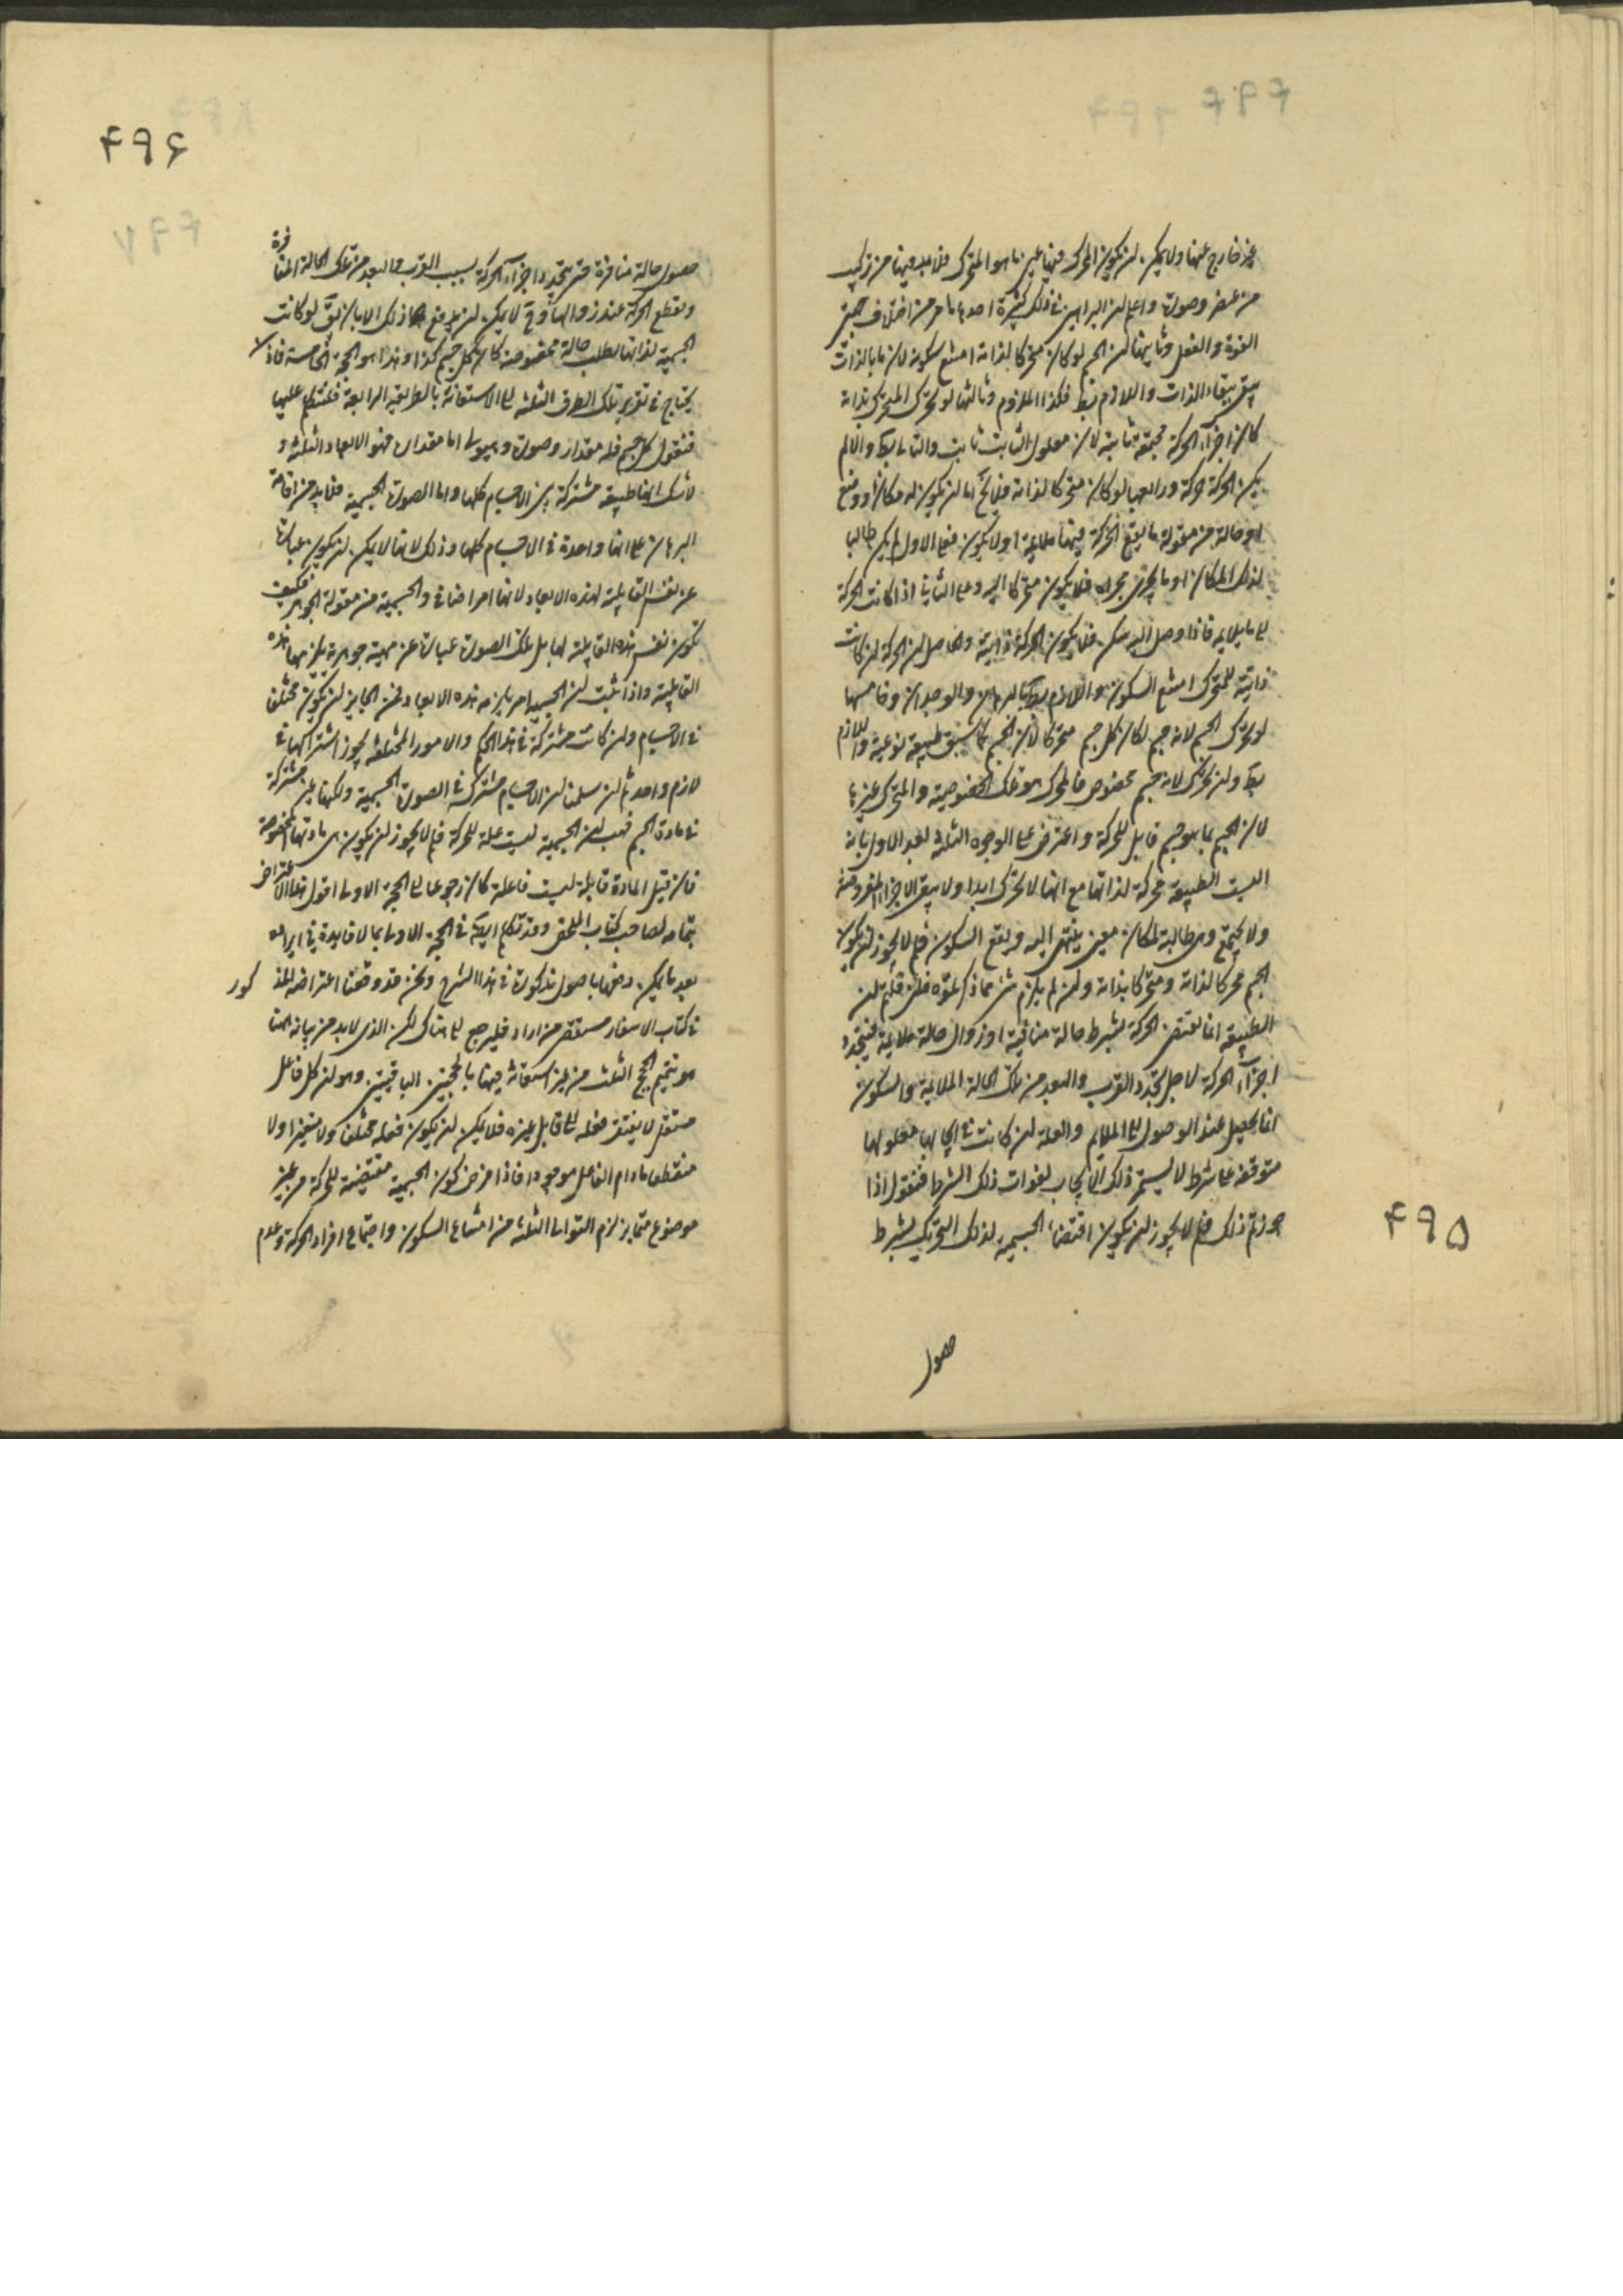 ۴۹۵
غير خارج عنها ولا يمكن ان يكون المحرك فيها عين ما هو المتحرك فلا بد فيها من تركيب
من عنصر وصورة واعلم ان البراهين فى ذلك كثيرة احدها ما مر من اختلاف حيثيتى
القوة والفعل وثانيها ان الجسم لو كان متحركا لذاته امتنع سكونه لان ما بالذات
يبقى ببقاء الذات واللازم بط فكذا الملزوم وثالثها لو تحرك المتحرك بذاته
كان اجزاء الحركة مجتمعة ثابتة لان معلول الثابت ثابت والتالى بط والا لم
يكن الحركة حركة ورابعها لو كان متحركا لذاته فلا يخ اما ان يكون له مكان او وضع
او حالة من مقولة ما يقع الحركة فيها ملايمة او لا يكون فعلى الاول لم يكن طالبا
لذلك المكان او ما يجرى مجراه فلا يكون متحركا اليه وعلى الثانى اذا كانت الحركة
الى ما يلايمه فاذا وصل اليه سكن فلا يكون الحركة ذاتية والحاصل ان الحركة ان كانت
ذاتية للمتحرك امتنع السكون واللازم بط بالبرهان والوجدان وخامسها
لو تحرك الجسم لانه جسم لكان كل جسم متحركا لان الجسم كما سبق طبيعة نوعية واللازم
بط وان تحرك لانه جسم مخصوص فالمحرك هو تلك الخصوصية والمتحرك غيرها
لان الجسم بما هو جسم قابل للحركة واعترض على الوجوه الثلثة بعد الاول بانه
اليست الطبيعة محركة لذاتها مع انها لا تحرك ابدا ولا يبقى الاجزاء المفروضة
ولا يجتمع وهى طالبة لمكان معين ينتهى اليه ويقع السكون فلم لا يجوز ان يكون
الجسم محركا لذاته ومتحركا بذاته وان لم يلزم شى مما ذكرتموه فلئن قلتم ان
الطبيعة انما تقتضى الحركة بشرط حالة منافية او زوال حالة ملايمة فيتجدد
اجزاء الحركة لاجل تجدد القرب والبعد من تلك الحالة الملايمة والسكون
انما يحصل عند الوصول الى الملايم والعلة ان كانت فى ايجابها معلولها
متوقفة على شرط لا يستمر ذلك الايجاب لفوات ذلك الشرط فنقول اذا
جوزتم ذلك فلم لا يجوز ان يكون اقتضاء الجسمية لذلك التحريك بشرط
حصول
۴۹۶
حصول حالة منافرة حتى يتجدد اجزاء الحركة بسبب القرب والبعد من تلك الحالة المنافرة
وتقطع الحركة عند زوالها وح لا يمكن ان يدفع ذلك الا بان يق لو كانت
الجسمية لذاتها تطلب حالة مخصوصة كان كل جسم كذا وهذا هو الحجة الخامسة فاذا
يحتاج فى تقرير تلك الطرق الثلثة الى الاستعانة بالطريقة الرابعة فلنتكلم عليها
فنقول كل جسم فله مقدار وصورة وهيولى اما مقداره فهو الابعاد الثلثة و
لا شك انها طبيعة مشتركة بين الاجسام كلها واما الصورة الجسمية فلا بد من اقامة
البرهان على انها واحدة فى الاجسام كلها وذلك لانها لا يمكن ان يكون عبارة
عن نفس القابلية لهذه الابعاد لانها امر اضافى والجسمية من مقولة الجوهر فكيف
تكون نفس هذه القابلية لها بل تلك الصورة عبارة عن مهية جوهرية يلزمها هذه
القابلية واذا ثبت ان الجسمية امر يلزمه هذه الابعاد فمن الجايز ان يكون مختلفا
فى الاجسام وان كانت مشتركة فى هذا الحكم والامور المختلفة يجوز اشتراكها فى
لازم واحد ثم لئن سلمنا ان الاجسام مشتركة فى الصورة الجسمية ولكنها غير مشتركة
فى مادة الجسم فهب ان الجسمية ليست علة للحركة فلم لا يجوز ان يكون هى مادتها المخصوصة
فان قيل المادة قابلة ليست فاعلة كان رجوعا الى الحجة الاولى اقول هذا الاعتراض
بتمامه لصاحب كتاب الملخص وقد تكلم ايضا فى الحجة الاولى بما لا فايدة فى ايراده
بعد ما يمكن دفعها باصول مذكورة فى هذا الشرح ونحن قد دفعنا اعتراضه المذكور
فى كتاب الاسفار مستقصى من اراد فليرجع الى هناك لكن الذى لا بد من بيانه ههنا
هو تتميم الحجج الثلث من غير استعانة فيها بالحجتين الباقيتين وهو ان كل فاعل
مستقل لا يفتقر فعله الى قابل غيره فلا يمكن ان يكون فعله مختلفا ولا متغيرا ولا
منقطعا ما دام الفاعل موجودا فاذا فرض كون الجسمية مقتضية للحركة من غير
موضوع متمايز لزم التوالى الثلثة من امتناع السكون واجتماع افراد الحركة وعدم